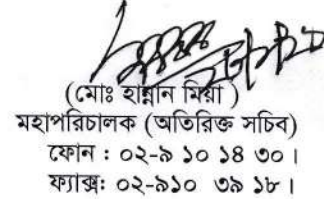 (মোঃ হান্নান মিয়া )
মহাপরিচালক (অতিরিক্ত সচিব)
ফোন : ০২-৯ ১০ ১৪ ৩০।
ফ্যাক্স: ০২-৯১০ ৩৯ ১৮।